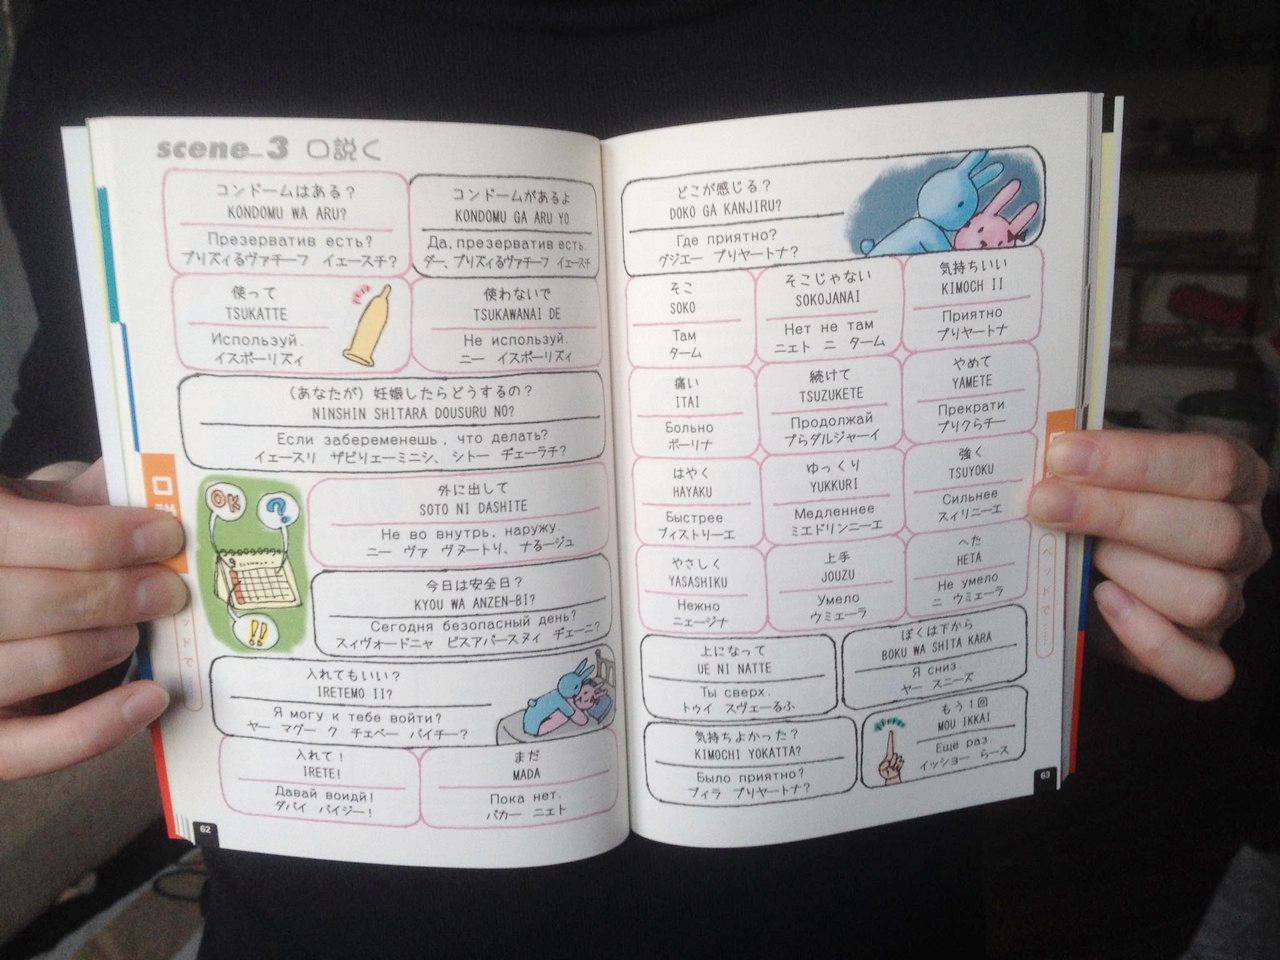 scene_3 口説く
コンドームはある？
KONDOMU WA ARU?
Презерватив есть?
プリズィるヴァチーフ イェースチ？
コンドームがあるよ
KONDOMU GA ARU YO
Да, презерватив есть.
ダー、プリズィるヴァチーフ イェースチ
使って
TSUKATTE
Используй.
イスポーリズィ
使わないで
TSUKAWANAI DE
Не используй.
ニー イスポーリズィ
（あなたが）妊娠したらどうするの？
NINSHIN SHITARA DOUSURU NO?
Если забеременешь, что делать?
イェースリ ザビリェーミニシ、シトー ヂェーラチ？
OK
?
!!
外に出して
SOTO NI DASHITE
Не во внутрь, наружу.
ニー ヴァ ヴヌートリ、ナるージュ
今日は安全日？
KYOU WA ANZEN-BI?
Сегодня безопасный день?
スィヴォードニャ ビスアパースヌィ ヂェーニ？
入れてもいい？
IRETEMO II?
Я могу к тебе войти?
ヤー マグー ク チェベー バイチー？
入れて！
IRETE!
Давай воидй!
ダバイ バイジー！
まだ
MADA
Пока нет.
パカー ニェト
62
どこが感じる？
DOKO GA KANJIRU?
Где приятно?
グジエー プリヤートナ？
そこ
SOKO
Там
ターム
そこじゃない
SOKOJANAI
Нет не там
ニェト ニ ターム
気持ちいい
KIMOCH II
Приятно
プリヤートナ
痛い
ITAI
Больно
ボーリナ
続けて
TSUZUKETE
Продолжай
プらダルジャーイ
やめて
YAMETE
Прекрати
プリクらチー
はやく
HAYAKU
Быстрее
ブィストリーエ
ゆっくり
YUKKURI
Медленнее
ミエドリンニーエ
強く
TSUYOKU
Сильнее
スィリニーエ
やさしく
YASASHIKU
Нежно
ニェージナ
上手
JOUZU
Умело
ウミェーラ
へた
HETA
Не умело
ニ ウミェーラ
上になって
UE NI NATTE
Ты сверх.
トゥイ スヴェーるふ
ぼくは下から
BOKU WA SHITA KARA
Я сниз.
ヤー スニーズ
気持ちよかった？
KIMOCHI YOKATTA?
Было приятно?
ブィラ プリヤートナ？
もう1回
MOU IKKAI
Ещё раз
イッショー らース
63
口
ベッドで…